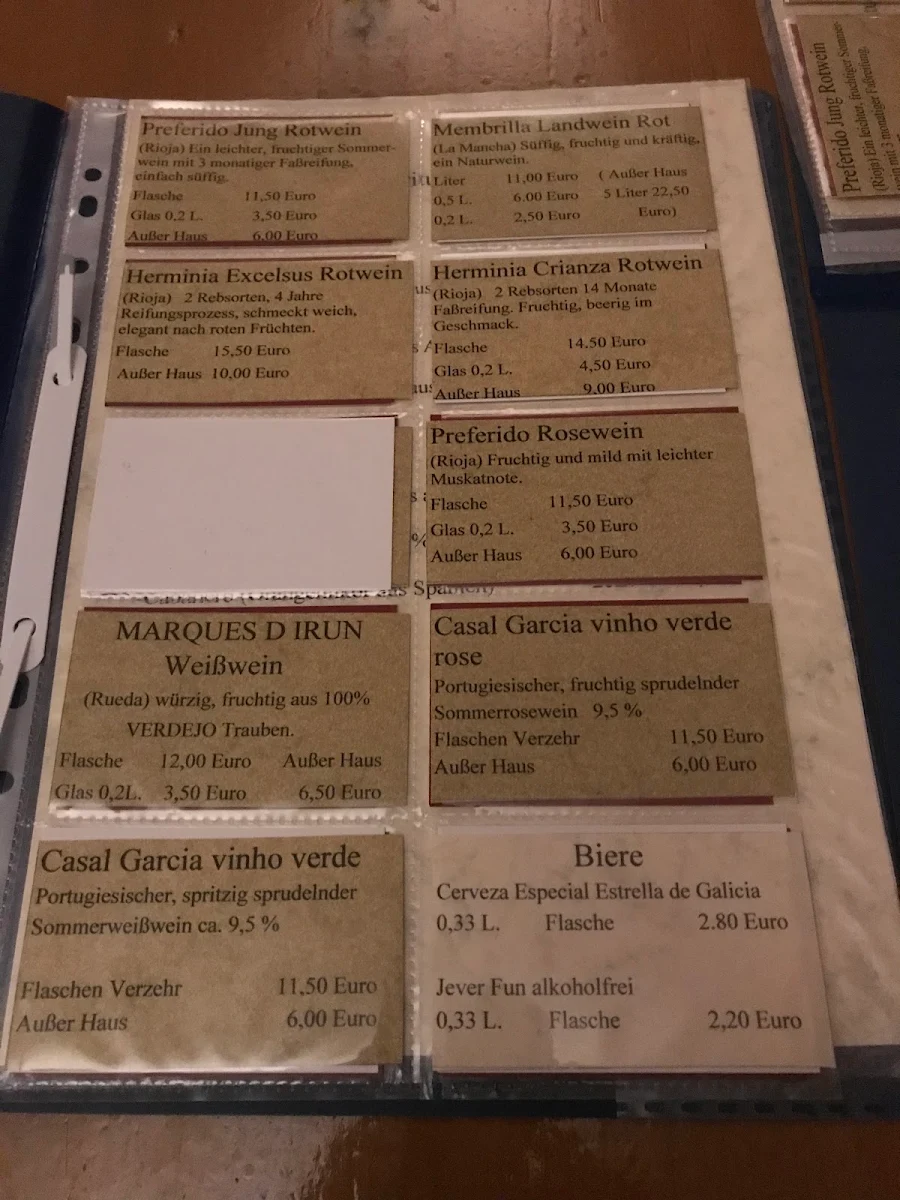 Preferido Jung Rotwein
(Rioja) Ein leichter, fruchtiger Sommer-
wein mit 3 monatiger Faßreifung,
einfach süffig.
Flasche 11,50 Euro
Glas 0,2 L. 3,50 Euro
Außer Haus 6,00 Euro
Membrilla Landwein Rot
(La Mancha) Süffig, fruchtig und kräftig,
ein Naturwein.
Liter 11,00 Euro ( Außer Haus
0,5 L. 6.00 Euro 5 Liter 22,50
0,2 L. 2,50 Euro Euro)
Herminia Excelsus Rotwein
(Rioja) 2 Rebsorten, 4 Jahre
Reifungsprozess, schmeckt weich,
elegant nach roten Früchten.
Flasche 15,50 Euro
Außer Haus 10,00 Euro
Herminia Crianza Rotwein
(Rioja) 2 Rebsorten 14 Monate
Faßreifung. Fruchtig, beerig im
Geschmack.
Flasche 14.50 Euro
Glas 0,2 L. 4,50 Euro
Außer Haus 9,00 Euro
Preferido Rosewein
(Rioja) Fruchtig und mild mit leichter
Muskatnote.
Flasche 11,50 Euro
Glas 0,2 L. 3,50 Euro
Außer Haus 6,00 Euro
MARQUES D IRUN
Weißwein
(Rueda) würzig, fruchtig aus 100%
VERDEJO Trauben.
Flasche 12,00 Euro Außer Haus
Glas 0,2L. 3,50 Euro 6,50 Euro
Casal Garcia vinho verde
rose
Portugiesischer, fruchtig sprudelnder
Sommerrosewein 9,5 %
Flaschen Verzehr 11,50 Euro
Außer Haus 6,00 Euro
Casal Garcia vinho verde
Portugiesischer, spritzig sprudelnder
Sommerweißwein ca. 9,5 %
Flaschen Verzehr 11,50 Euro
Außer Haus 6,00 Euro
Biere
Cerveza Especial Estrella de Galicia
0,33 L. Flasche 2.80 Euro
Jever Fun alkoholfrei
0,33 L. Flasche 2,20 Euro
Preferido Jung Rotwein
(Rioja) Ein leichter, fruchtiger Sommer-
wein mit 3 monatiger Faßreifung,